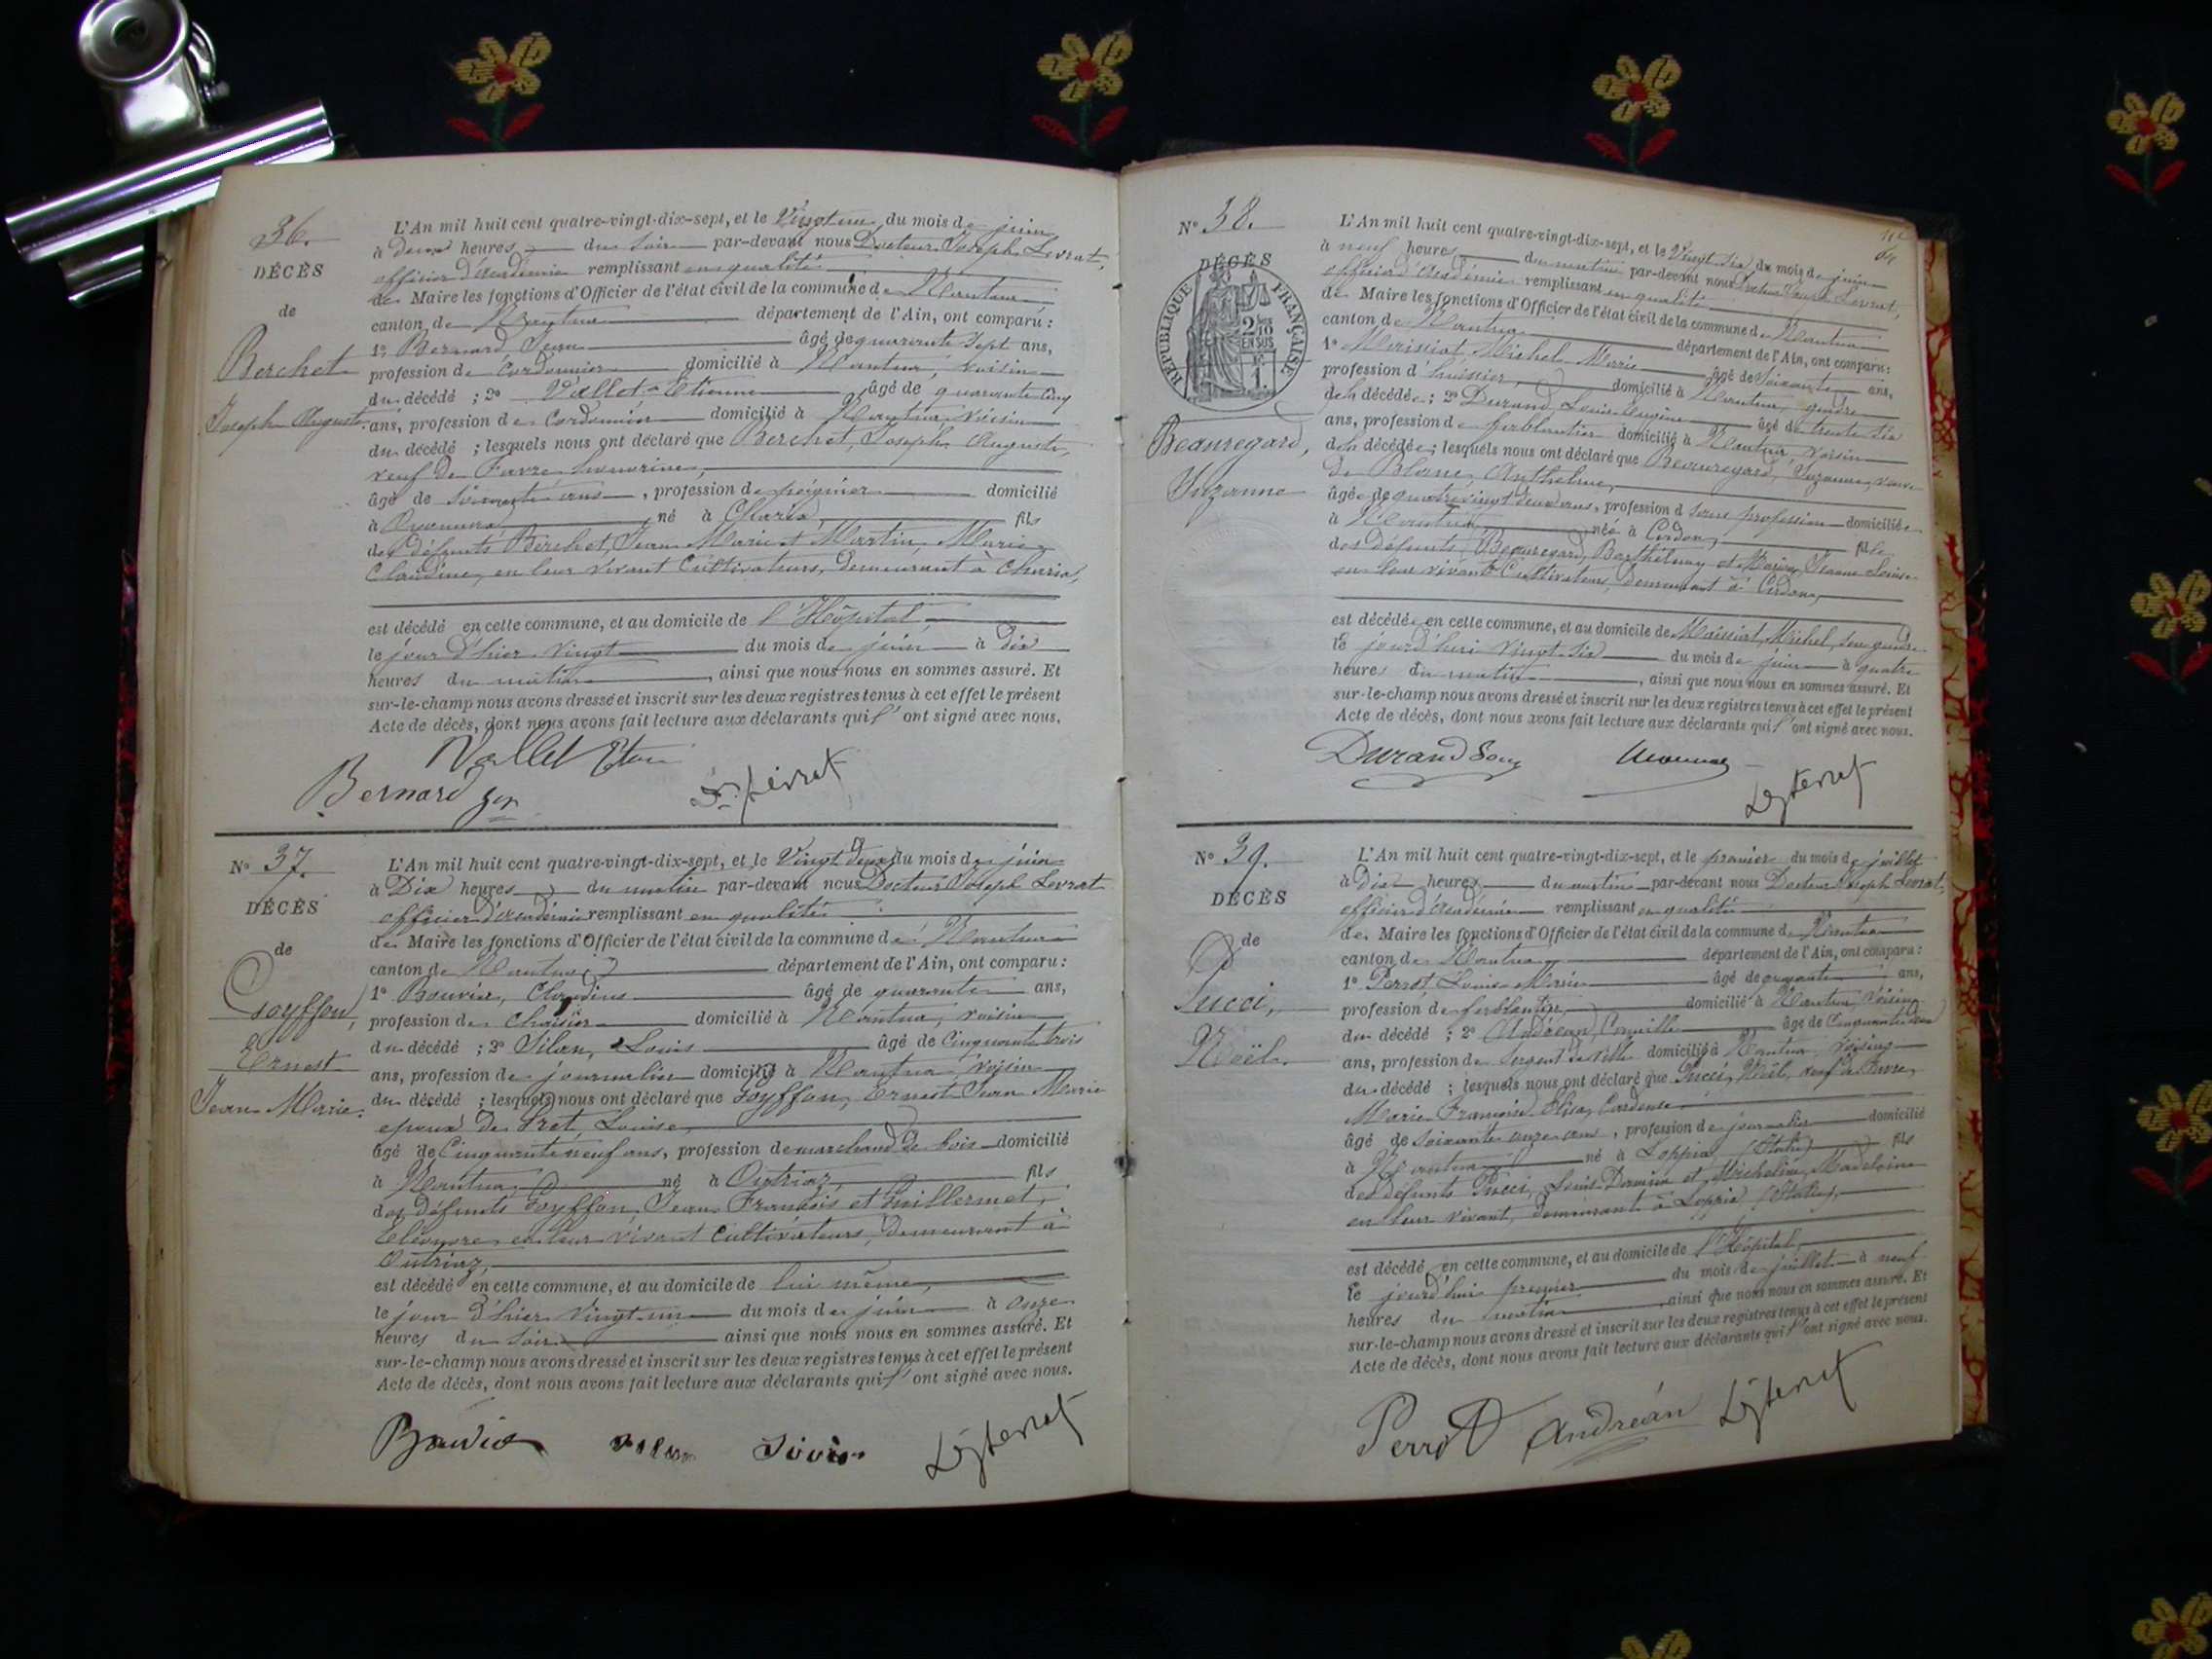 36.
DÉCÈS
de
Berchet
Joseph Auguste.
L'An mil huit cent quatre-vingt-dix-sept, et le Vingt un du mois de juin
à deux heures du soir par-devant nous Docteur Joseph Levrat,
officier d'académie remplissant en qualité
de Maire les fonctions d'Officier de l'état civil de la commune de Nantua
canton de Nantua département de l'Ain, ont comparu :
1° Bernard Jean âgé de quarante sept ans,
profession de Cordonnier domicilié à Nantua, voisin
du décédé ; 2° Vallet Etienne âgé de quarante cinq
ans, profession de Cordonnier domicilié à Nantua voisin
du décédé ; lesquels nous ont déclaré que Berchet, Joseph Auguste,
veuf de Favre honorine,
âgé de soixante ans, profession de peignier domicilié
à Oyonnax né à Charix, fils
des défunts Berchet, Jean Marie et Martin, Marie
Claudine, en leur vivant Cultivateurs, demeurant à Charix,
est décédé en cette commune, et au domicile de l'Hôpital,
le jour d'hier Vingt du mois de juin à dix
heures du matin, ainsi que nous nous en sommes assuré. Et
sur-le-champ nous avons dressé et inscrit sur les deux registres tenus à cet effet le présent
Acte de décès, dont nous avons fait lecture aux déclarants qui l'ont signé avec nous.
Vallet
Bernard Dr Levrat
N° 37.
DÉCÈS
de
Goyffon,
Ernest
Jean Marie.
L'An mil huit cent quatre-vingt-dix-sept, et le Vingt deux du mois de juin
à Dix heures du matin par-devant nous Docteur Joseph Levrat
officier d'académie remplissant en qualité
de Maire les fonctions d'Officier de l'état civil de la commune de Nantua
canton de Nantua département de l'Ain, ont comparu :
1° Bouvier, Claudius âgé de quarante ans,
profession de Chaisier domicilié à Nantua, voisin
du décédé ; 2° Silan, Louis âgé de Cinquante trois
ans, profession de journalier domicilié à Nantua voisin
du décédé ; lesquels nous ont déclaré que Goyffon, Ernest Jean Marie
époux de Bret, Louise,
âgé de Cinquante neuf ans, profession de marchand de bois domicilié
à Nantua, né à Outriaz, fils
des défunts Goyffon, Jean François et Guillermet,
Eléonore, en leur vivant Cultivateurs, demeurant à
Outriaz,
est décédé en cette commune, et au domicile de lui même,
le jour d'hier Vingt-un du mois de juin à onze
heures du soir ainsi que nous nous en sommes assuré. Et
sur-le-champ nous avons dressé et inscrit sur les deux registres tenus à cet effet le présent
Acte de décès, dont nous avons fait lecture aux déclarants qui l'ont signé avec nous.
Dr Levrat
N° 38.
DÉCÈS
RÉPUBLIQUE FRANÇAISE
2/10
EN SUS
1.
Beauregard,
Suzanne
L'An mil huit cent quatre-vingt-dix-sept, et le Vingt six du mois de juin
à neuf heures du matin par-devant nous Docteur Joseph Levrat,
officier d'académie remplissant en qualité
de Maire les fonctions d'Officier de l'état civil de la commune de Nantua
canton de Nantua département de l'Ain, ont comparu :
1° Michel Marie âgé de Soixante ans,
profession d'huissier, domicilié à Nantua, gendre
de la décédée ; 2° Durand, Louis Eugène âgé de trente six
ans, profession de ferblantier domicilié à Nantua voisin
de la décédée ; lesquels nous ont déclaré que Beauregard, Suzanne, veuve
de Blanc, Anthelme,
âgée de quatre vingt deux ans, profession d sans profession domiciliée
à Nantua née à Cerdon, fille
des défunts Beauregard, Barthélemy et Jeanne Louise
en leur vivant Cultivateurs, demeurant à Cerdon,
est décédée en cette commune, et au domicile de Michel, son gendre
le jourd'hui Vingt-six du mois de juin à quatre
heures du matin, ainsi que nous nous en sommes assuré. Et
sur-le-champ nous avons dressé et inscrit sur les deux registres tenus à cet effet le présent
Acte de décès, dont nous avons fait lecture aux déclarants qui l'ont signé avec nous.
Durand
Dr Levrat
N° 39.
DÉCÈS
de
Pucci,
Noël.
L'An mil huit cent quatre-vingt-dix-sept, et le premier du mois de juillet
à dix heures du matin par-devant nous Docteur Joseph Levrat,
officier d'académie remplissant en qualité
de Maire les fonctions d'Officier de l'état civil de la commune de Nantua
canton de Nantua département de l'Ain, ont comparu :
1° Perrot Louis âgé de quarante ans,
profession de ferblantier, domicilié à Nantua, voisin
du décédé ; 2° Andréan, Camille âgé de Cinquante deux
ans, profession de Sergent de ville domicilié à Nantua voisin
du décédé ; lesquels nous ont déclaré que Pucci, Noël, veuf de Favre,
Marie Françoise Elisa
âgé de soixante onze ans, profession de journalier domicilié
à Nantua né à Loppia, (Italie) fils
des défunts Pucci, Louis et Michelin, Madeleine
en leur vivant, demeurant à Loppia (Italie),
est décédé en cette commune, et au domicile de l'Hôpital,
le jourd'hui premier du mois de juillet à neuf
heures du matin ainsi que nous nous en sommes assuré. Et
sur-le-champ nous avons dressé et inscrit sur les deux registres tenus à cet effet le présent
Acte de décès, dont nous avons fait lecture aux déclarants qui l'ont signé avec nous.
Perrot Andréan Dr Levrat